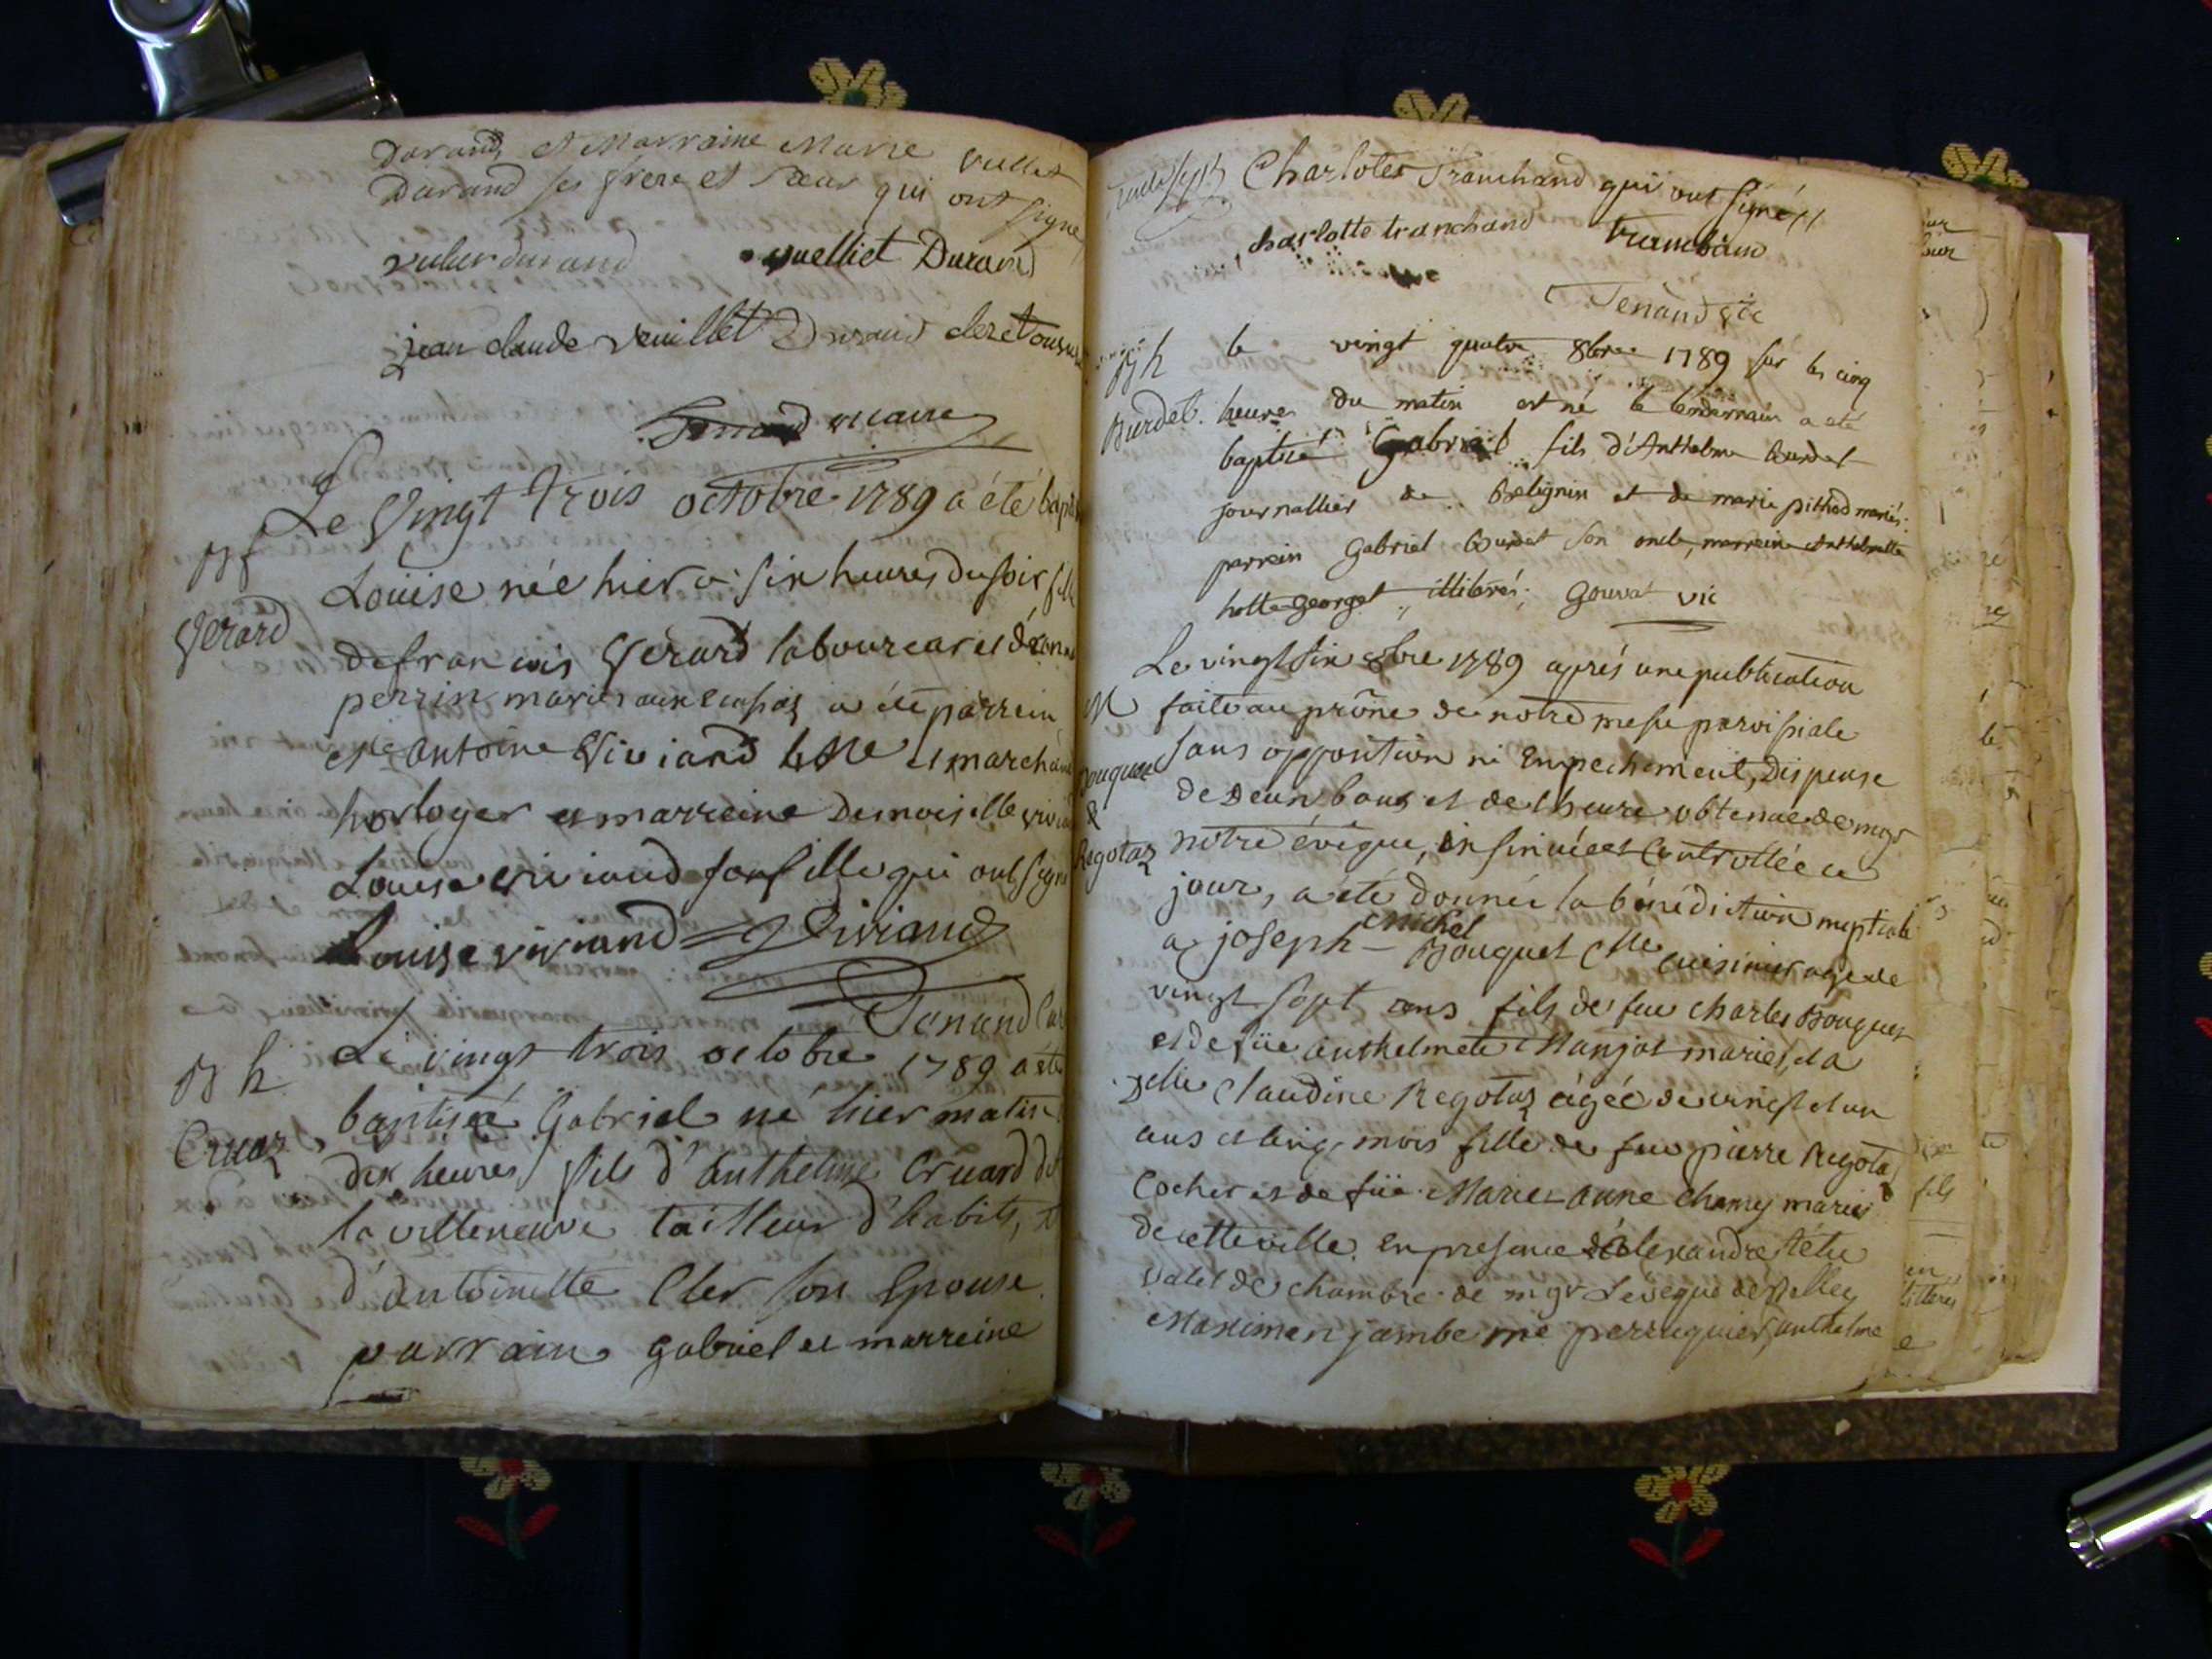 Durand et Marraine Marie Vulliet
Durand ses frère et sœur qui ont signé
vulier durand vuelliet Durand
jean claude vuillet Durand clerc tonsuré
Tenand vicaire
Le Vingt Trois octobre 1789 a été bap
B f
Louise née hier a six heures du soir fille
Gerard
de francois Gerard laboureur et de
perrin mariés aux a été parrein
antoine Viviand Me marchand
horloger et marreine Demoiselle
Louise viviand sa fille qui ont signé
Louise viviand Viviand
Tenand
Le vingt trois octobre 1789 a été
B h
baptisé Gabriel né hier matin
Cruaz
dix heures fils d'anthelme Cruard de
la villeneuve tailleur d'habits, et
d'antoinette Cler son Epouse.
parrain gabriel et marreine
Charlotes Tranchand qui ont signé //
charlotte tranchand tranchand
Tenand
B h
le vingt quatre 8bre 1789 sur les cinq
Burdet.
heures du matin est né le lendemain a été
baptisé Gabriel fils d'Anthelme Burdet
journallier de Belignin et de marie pithod mariés:
parrein Gabriel Burdet son oncle, marreine Anthelmette
georget illiterés; Gouvat vic
Le vingt six 8bre 1789 après une publication
M
faite au prône de notre messe paroissiale
Bouquet
sans opposition ni Empechement, Dispense
&
de Deux bans et de l'heure obtenue de mgr
Regotaz
notre évêque, insinuée et Controllée ce
jour, a été donnée la bénédiction nuptiale
michel
a joseph — Bouquet cuisinier agé de
vingt sept ans fils de feu charles Bouquet
et de füe anthelmete Manjot mariés, et a
Delle Claudine Regotaz âgée de vingt et un
ans et cinq mois fille de feu pierre Regotaz
Cocher et de füe Marie anne Chamey mariés
de cette ville. en presence d'alexandre tétu
valet de chambre de mgr L'évêque de Belley
Maximen jambe me perruquier, anthelme